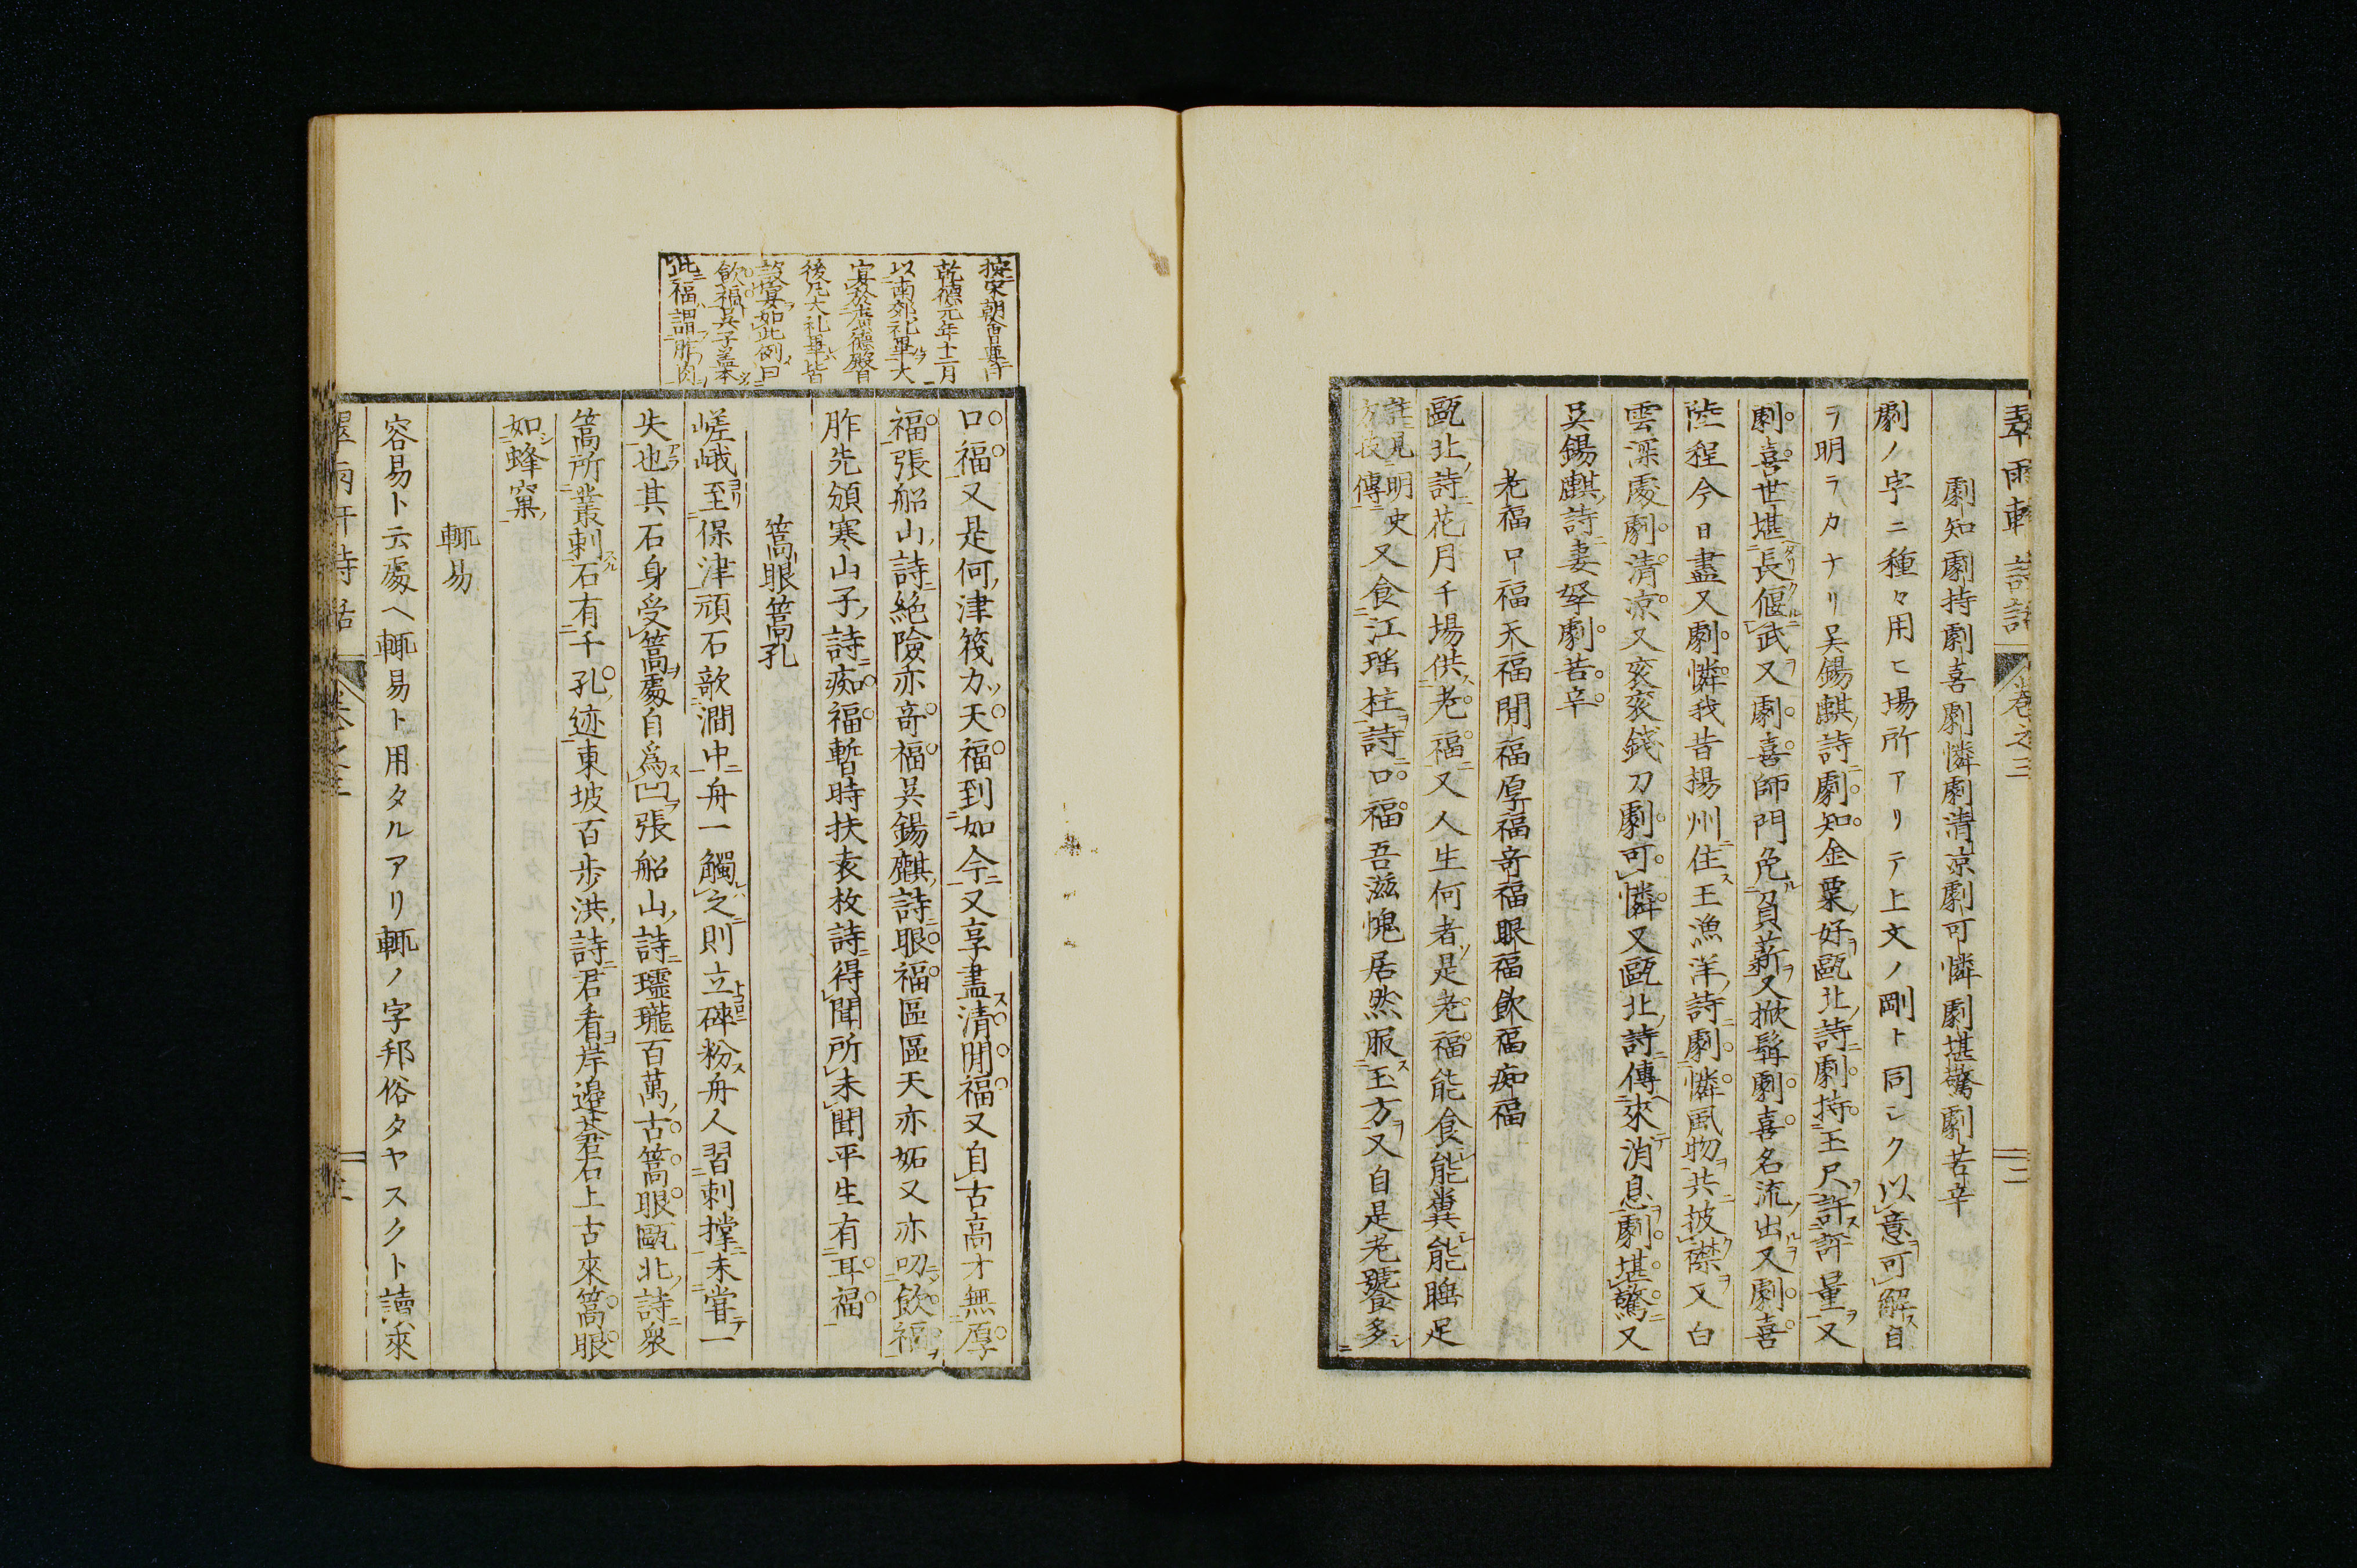 翠雨軒詩話 卷之三 二
劇知劇持劇喜劇憐劇清凉劇可憐劇堪驚劇苦辛
劇ノ字ニ種々用ヒ場所アリテ上文ノ剛ト同シク以意可解自
ラ明ラカナリ吴錫麒詩劇知金粟好甌北詩劇持玉尺許評量又
劇喜世堪長偃武又劇喜師門免負薪又掀髯劇喜名流出又劇喜
陸程今日盡又劇憐我昔揚州住王漁洋詩劇憐風物共披襟又白
雲深處劇清凉又衮衮錢刀劇可憐又甌北詩傳來消息劇堪驚又
吴錫麒詩妻孥劇苦辛
老福口福天福閒福厚福奇福眼福飲福痴福
甌北詩花月千場供老福又人生何者是老福能食能糞能睡足
註見明史
方技傳
又食江瑶柱詩口福吾滋愧居然服玉方又自是老饕多
口福又是何津筏力天福到如今又享盡清閒福又自古高才無厚
福張船山詩絶險亦奇福吴錫麒詩眼福區區天亦妬又亦叨飲福
胙先頒寒山子詩痴福暫時扶袁枚詩得聞所未聞平生有耳福
按宋朝會要
乾德元年十一月
以南郊礼畢大
宴於廣德殿自
後凡大礼畢皆
設宴如此例曰
飲福吴子蓋本
此福謂胙肉
篙眼篙孔
嵯峨至保津頑石歃澗中舟一觸之則立碎粉舟人習刺撑未嘗一
失也其石身受篙處自爲凹張船山詩瓀瓏百萬古篙眼甌北詩衆
篙所叢刺石有千孔迹東坡百步洪詩君看岸邊蒼石上古來篙眼
如蜂窠
輒易
容易ト云處ヘ輒易ト用タルアリ輒ノ字邦俗タヤスクト讀來
翠雨軒詩話 卷之三